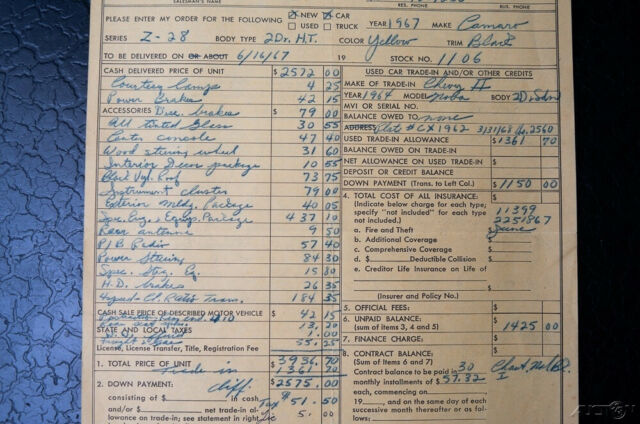 SALESMAN'S NAME
RES. PHONE
BUS. PHONE
PLEASE ENTER MY ORDER FOR THE FOLLOWING X NEW X CAR YEAR 1967 MAKE Camaro
USED TRUCK
SERIES Z-28 BODY TYPE 2Dr. H.T. COLOR Yellow TRIM Black
TO BE DELIVERED ON OR ABOUT 6/16/67 19 STOCK NO. 1106
CASH DELIVERED PRICE OF UNIT $ 2572 00
Courtesy Lamps 4 25
Power Brakes 42 15
ACCESSORIES Disc. brakes 79 00
All tinted Glass 30 55
Center console 47 40
Wood steering wheel 31 60
Interior Decor package 10 55
Black Vyl. Roof 73 75
Instrument cluster 79 00
Exterior Mldg. Package 40 05
Spec. Eng. & Equip. Package 437 10
Rear antenna 9 50
P/B Radio 57 40
Power Steering 84 30
Spec. Strg. Eq. 15 80
H.D. brakes 26 35
184 35
CASH SALE PRICE OF DESCRIBED MOTOR VEHICLE $ 42 15
13.20
STATE AND LOCAL TAXES 1.00
55.25
License, License Transfer, Title, Registration Fee
1. TOTAL PRICE OF UNIT $ 3936.70
Trade in 1361 70
2. DOWN PAYMENT: diff. $2575.00
consisting of $ in cash Tax $51.50
and/or $ net trade-in al-
lowance on trade-in; see statement in right Lic 5.00
USED CAR TRADE-IN AND/OR OTHER CREDITS
MAKE OF TRADE-IN Chevy II
YEAR 1964 MODEL Nova BODY 2D. Sdn
MVI OR SERIAL NO.
BALANCE OWED TO none
ADDRESS Plat # CX1962 3/31/68 2560
USED TRADE-IN ALLOWANCE $ 1361 70
BALANCE OWED ON TRADE-IN
NET ALLOWANCE ON USED TRADE-IN $
DEPOSIT OR CREDIT BALANCE
DOWN PAYMENT (Trans. to Left Col.) $ 1150 00
4. TOTAL COST OF ALL INSURANCE:
(Indicate below charge for each type;
specify "not included" for each type
not included.) 11399
2251867
a. Fire and Theft $ June
b. Additional Coverage $
c. Comprehensive Coverage $
d. $ Deductible Collision $
e. Creditor Life Insurance on Life of
$
(Insurer and Policy No.)
5. OFFICIAL FEES: $
6. UNPAID BALANCE: $ 1425 00
(sum of items 3, 4 and 5)
7. FINANCE CHARGE: $
8. CONTRACT BALANCE:
(Sum of Items 6 and 7)
Contract balance to be paid in 30
monthly installments of $ 57.32
each, commencing on
19 , and on the same day of each
successive month thereafter or as fol-
lows: